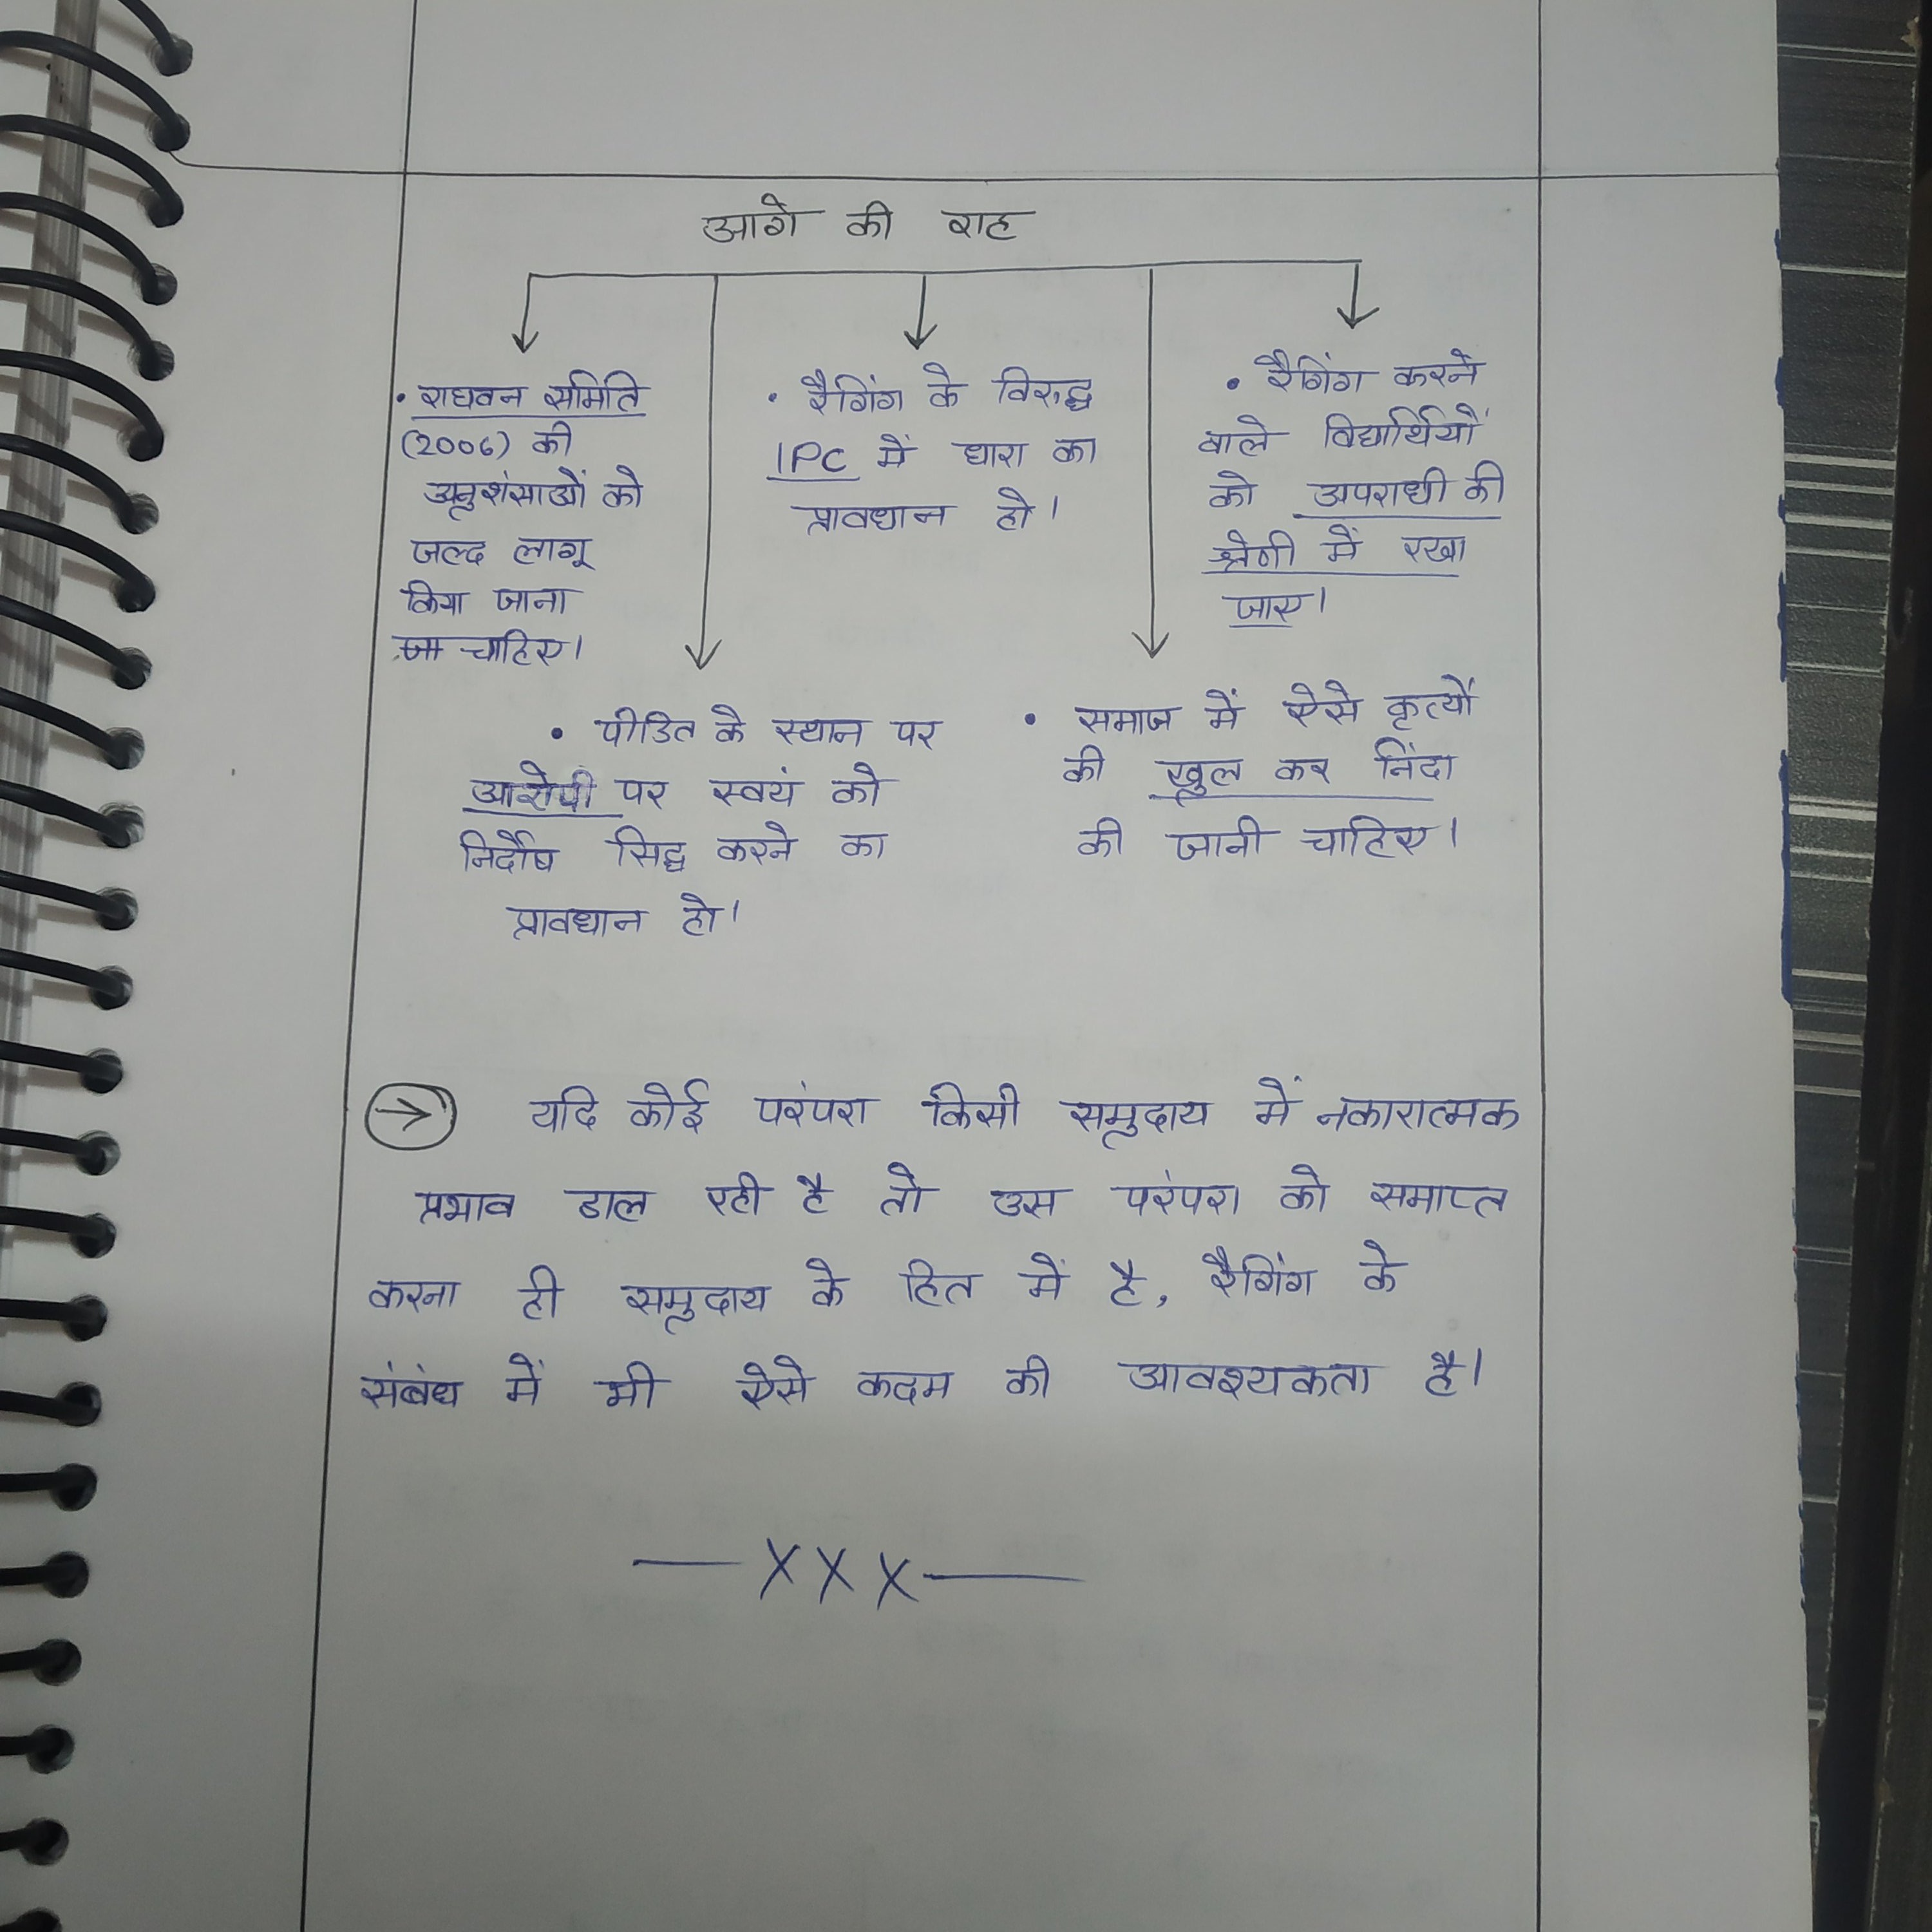 आगे की राह
• राघवन समिति
(2006) की
अनुशंसाओं को
जल्द लागू
किया जाना
चाहिए।
• रैगिंग के विरुद्ध
IPC में धारा का
प्रावधान हो।
• रैगिंग करने
वाले विद्यार्थियों
को अपराधी की
श्रेणी में रखा
जाए।
• पीडित के स्थान पर
आरोपी पर स्वयं को
निर्दोष सिद्ध करने का
प्रावधान हो।
• समाज में ऐसे कृत्यों
की खुल कर निंदा
की जानी चाहिए।
→ यदि कोई परंपरा किसी समुदाय में नकारात्मक
प्रभाव डाल रही है तो उस परंपरा को समाप्त
करना ही समुदाय के हित में है, रैगिंग के
संबंध में भी ऐसे कदम की आवश्यकता है।
— X X X —